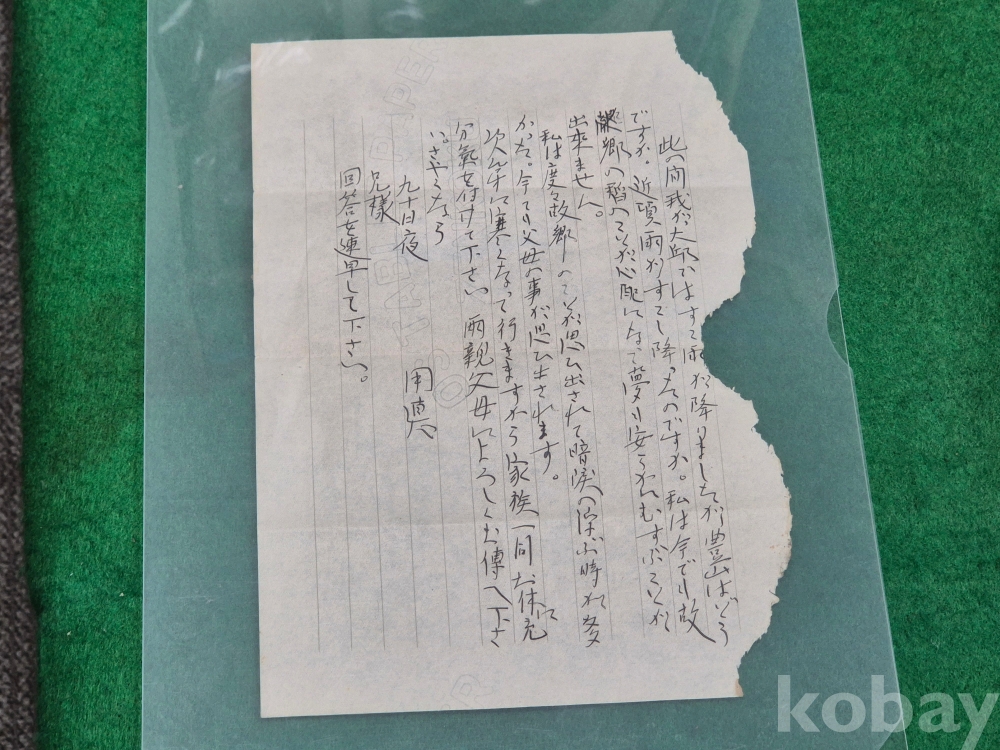 此の間我が大邱ではすこし雨が降りましたが豊山はどう
ですか。近頃雨がすこし降ったのですか。私は今でも故
郷の稲のことが心配になって夢も安らかにむすぶことが
出来ません。
私は度々故郷のことが思ひ出されて暗涙へ浮ぶ時が多
かった。今でも父母の事が思ひ出されます。
次第に寒くなって行きますから家族一同お体に充
分気を付けて下さい 両親父母によろしくお傳へ下さ
い。さやうなら
九十日夜
兄様
回答を速早して下さい。
kobay